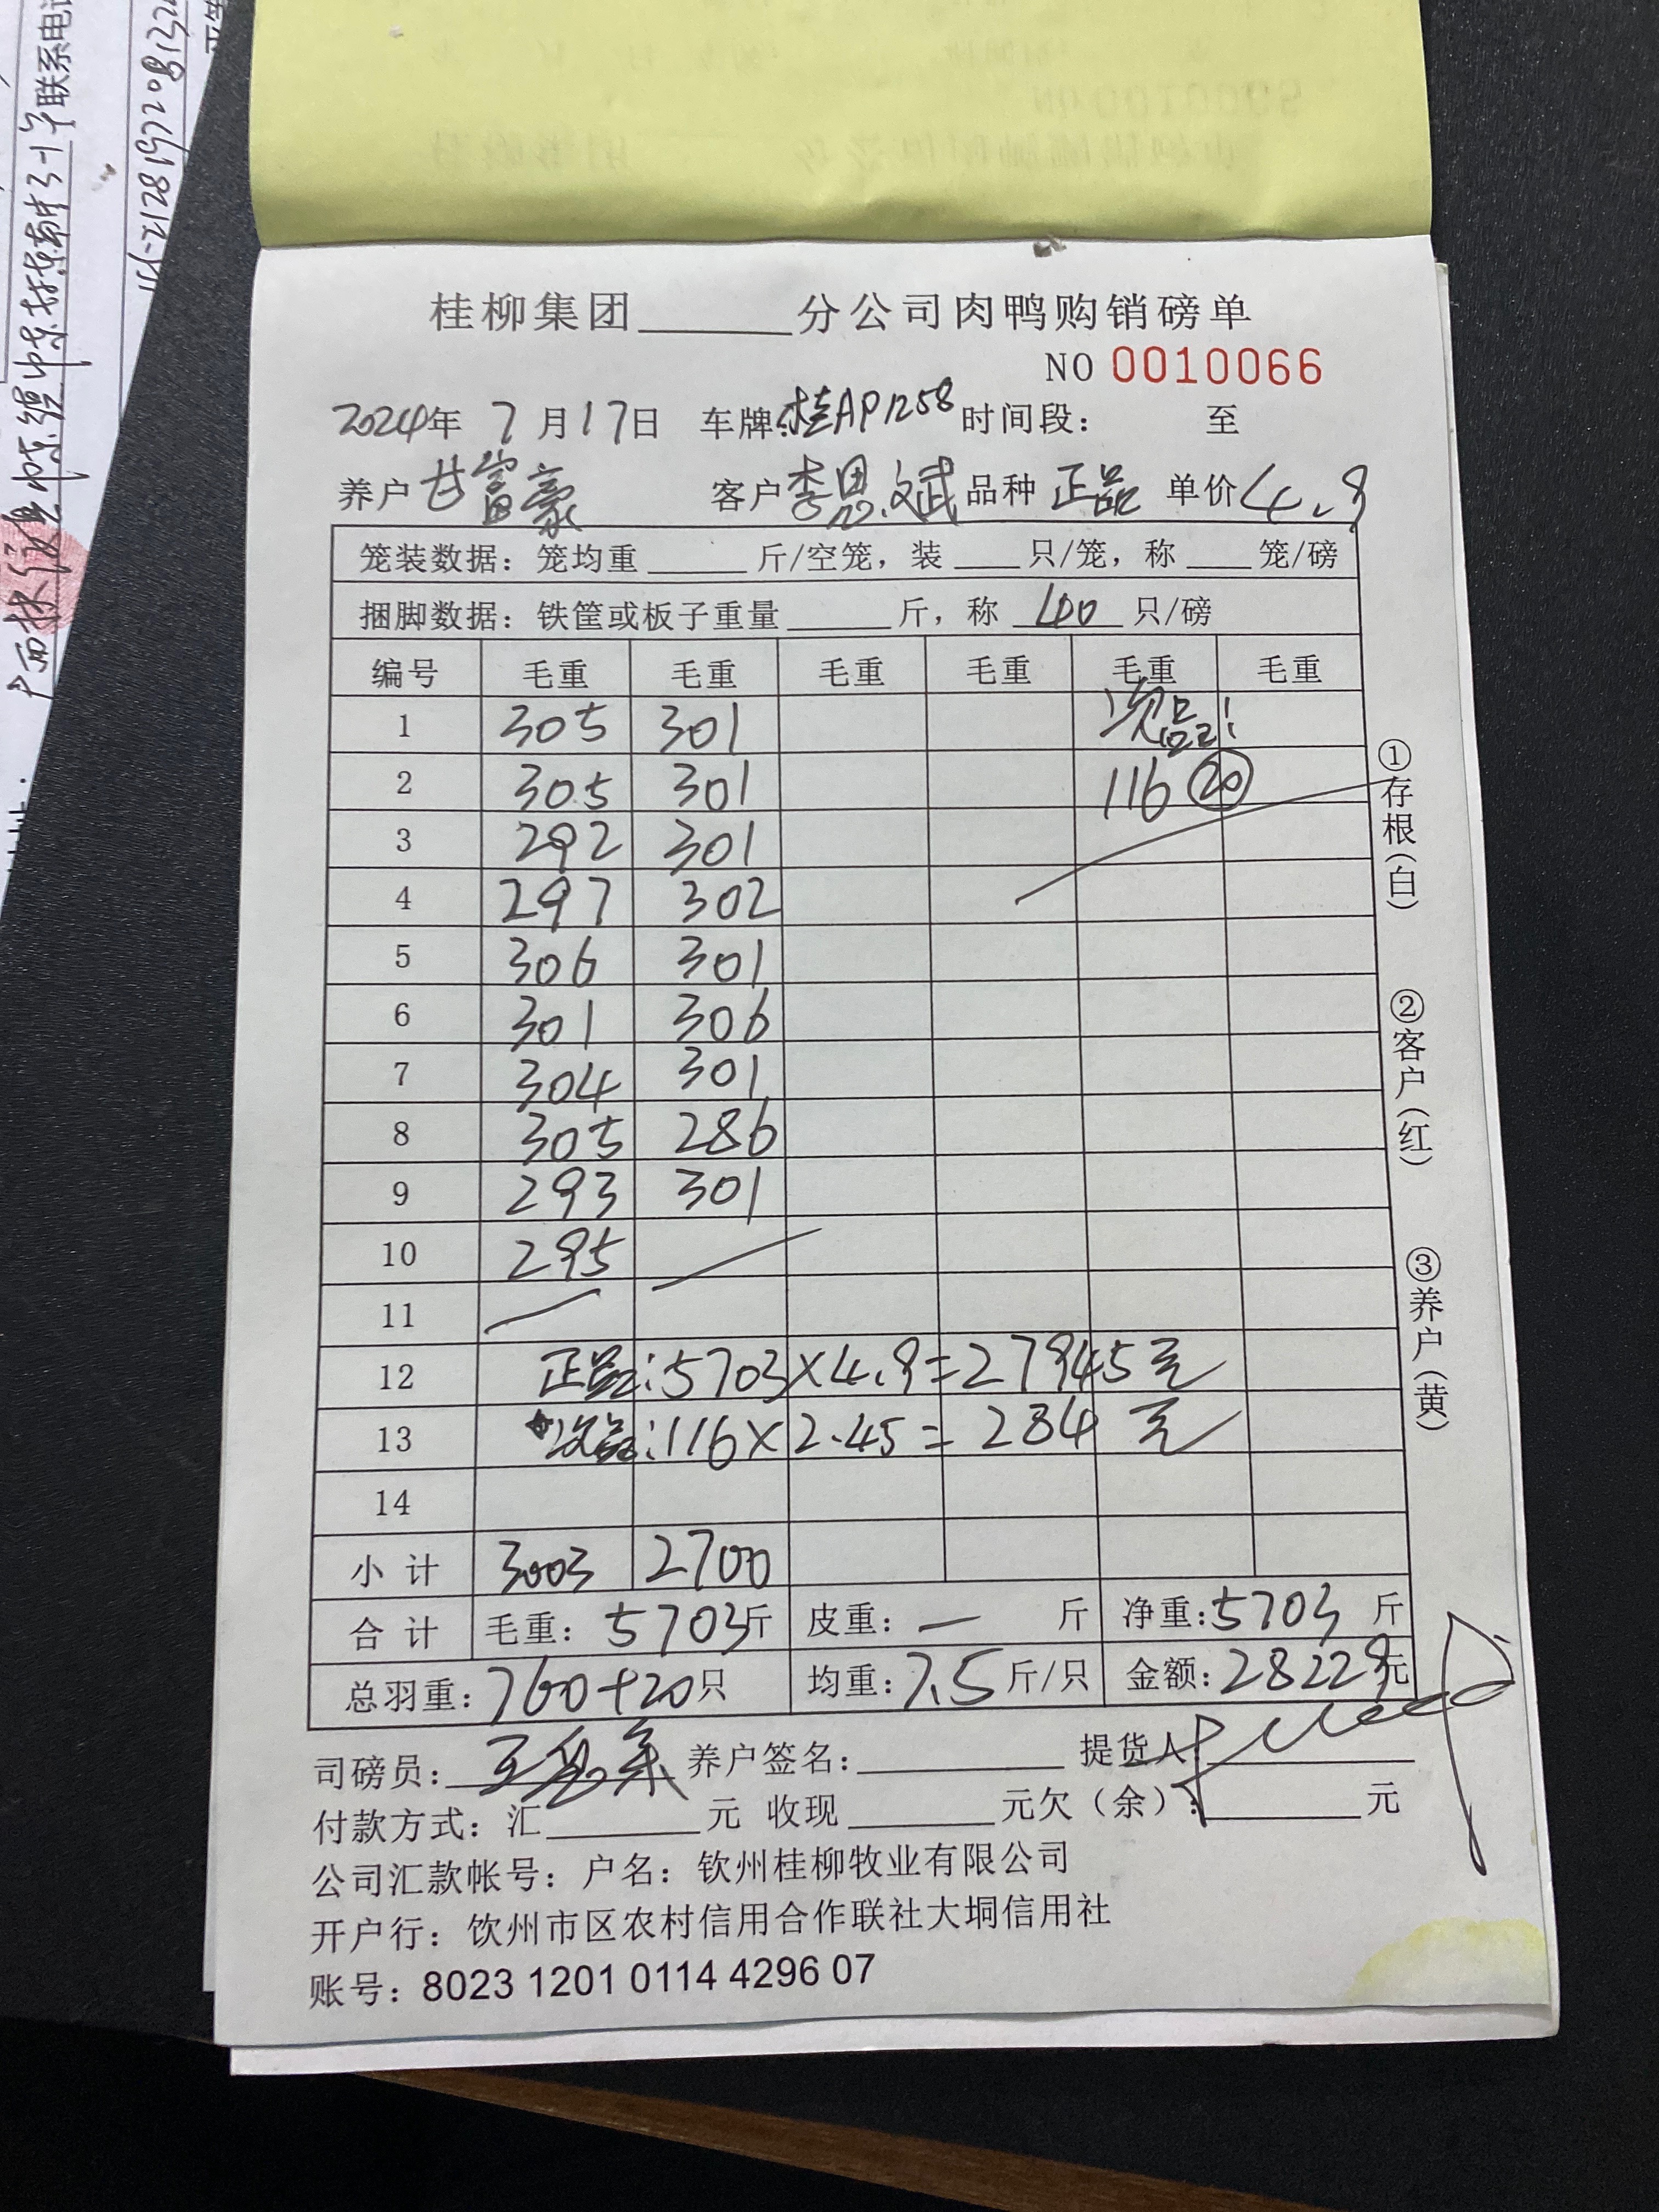 桂柳集团______分公司肉鸭购销磅单
NO 0010066
2024年 7月17日 车牌:桂AP1258 时间段: 至
养户甘富豪 客户李思斌 品种 正品 单价4.9
笼装数据：笼均重______斤/空笼，装____只/笼，称____笼/磅
捆脚数据：铁筐或板子重量______斤，称 40 只/磅
编号 毛重 毛重 毛重 毛重 毛重 毛重
1 305 301 次品:
2 305 301 116 20
3 292 301
4 297 302
5 306 301
6 301 306
7 304 301
8 305 286
9 293 301
10 295
11
12 正品:5703×4.9=27945元
13 次品:116×2.45=284元
14
小计 3003 2700
合计 毛重：5703斤 皮重：— 斤 净重:5703 斤
总羽重：760+20只 均重：7.5斤/只 金额：28229元
司磅员： 养户签名： 提货人：
付款方式：汇______元 收现______元欠（余）：______元
公司汇款帐号：户名：钦州桂柳牧业有限公司
开户行：钦州市区农村信用合作联社大垌信用社
账号：8023 1201 0114 4296 07
①存根（白） ②客户（红） ③养户（黄）
联系电话